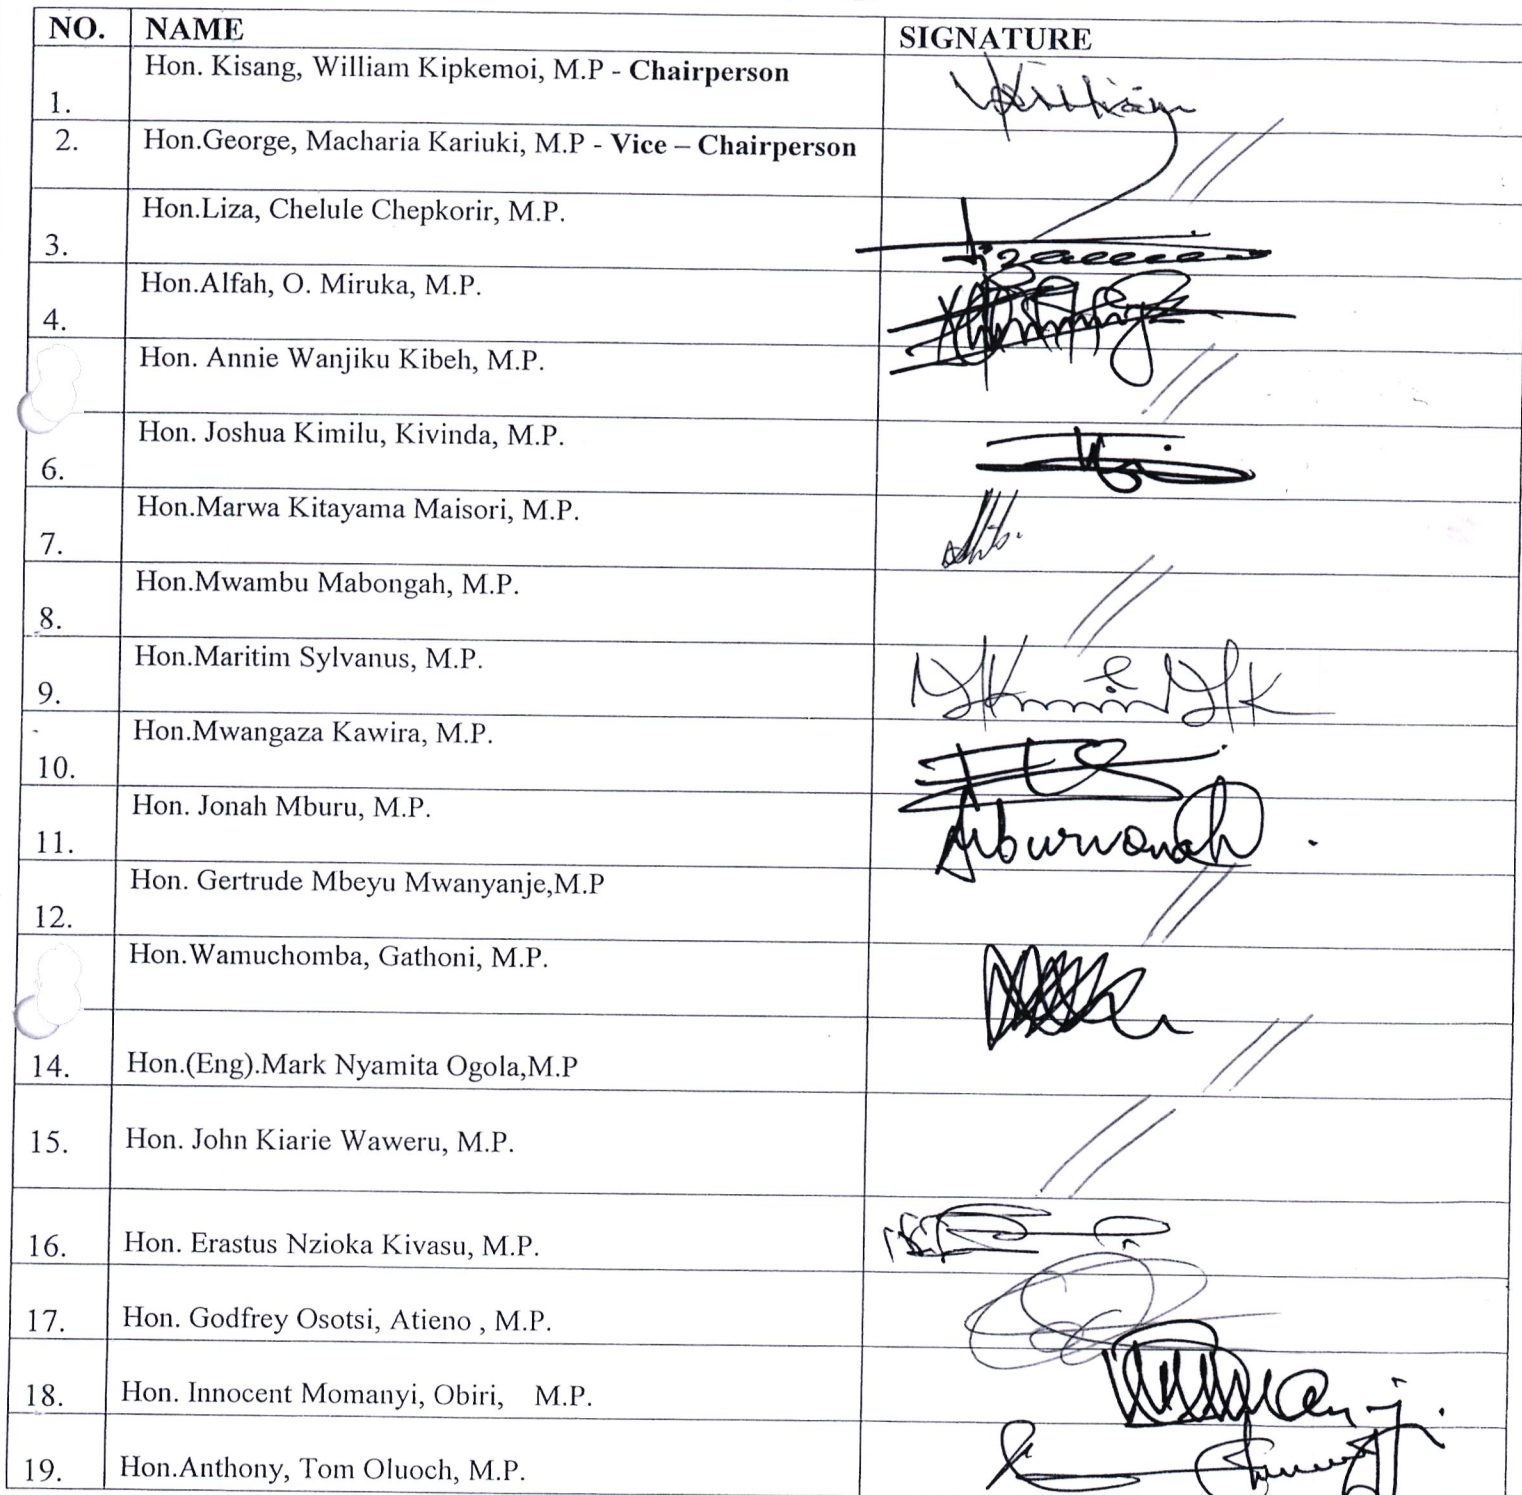 NO. NAME SIGNATURE
1. Hon. Kisang, William Kipkemoi, M.P - Chairperson
2. Hon.George, Macharia Kariuki, M.P - Vice – Chairperson
3. Hon.Liza, Chelule Chepkorir, M.P.
4. Hon.Alfah, O. Miruka, M.P.
Hon. Annie Wanjiku Kibeh, M.P.
6. Hon. Joshua Kimilu, Kivinda, M.P.
7. Hon.Marwa Kitayama Maisori, M.P.
8. Hon.Mwambu Mabongah, M.P.
9. Hon.Maritim Sylvanus, M.P.
10. Hon.Mwangaza Kawira, M.P.
11. Hon. Jonah Mburu, M.P.
12. Hon. Gertrude Mbeyu Mwanyanje,M.P
Hon.Wamuchomba, Gathoni, M.P.
14. Hon.(Eng).Mark Nyamita Ogola,M.P
15. Hon. John Kiarie Waweru, M.P.
16. Hon. Erastus Nzioka Kivasu, M.P.
17. Hon. Godfrey Osotsi, Atieno , M.P.
18. Hon. Innocent Momanyi, Obiri, M.P.
19. Hon.Anthony, Tom Oluoch, M.P.